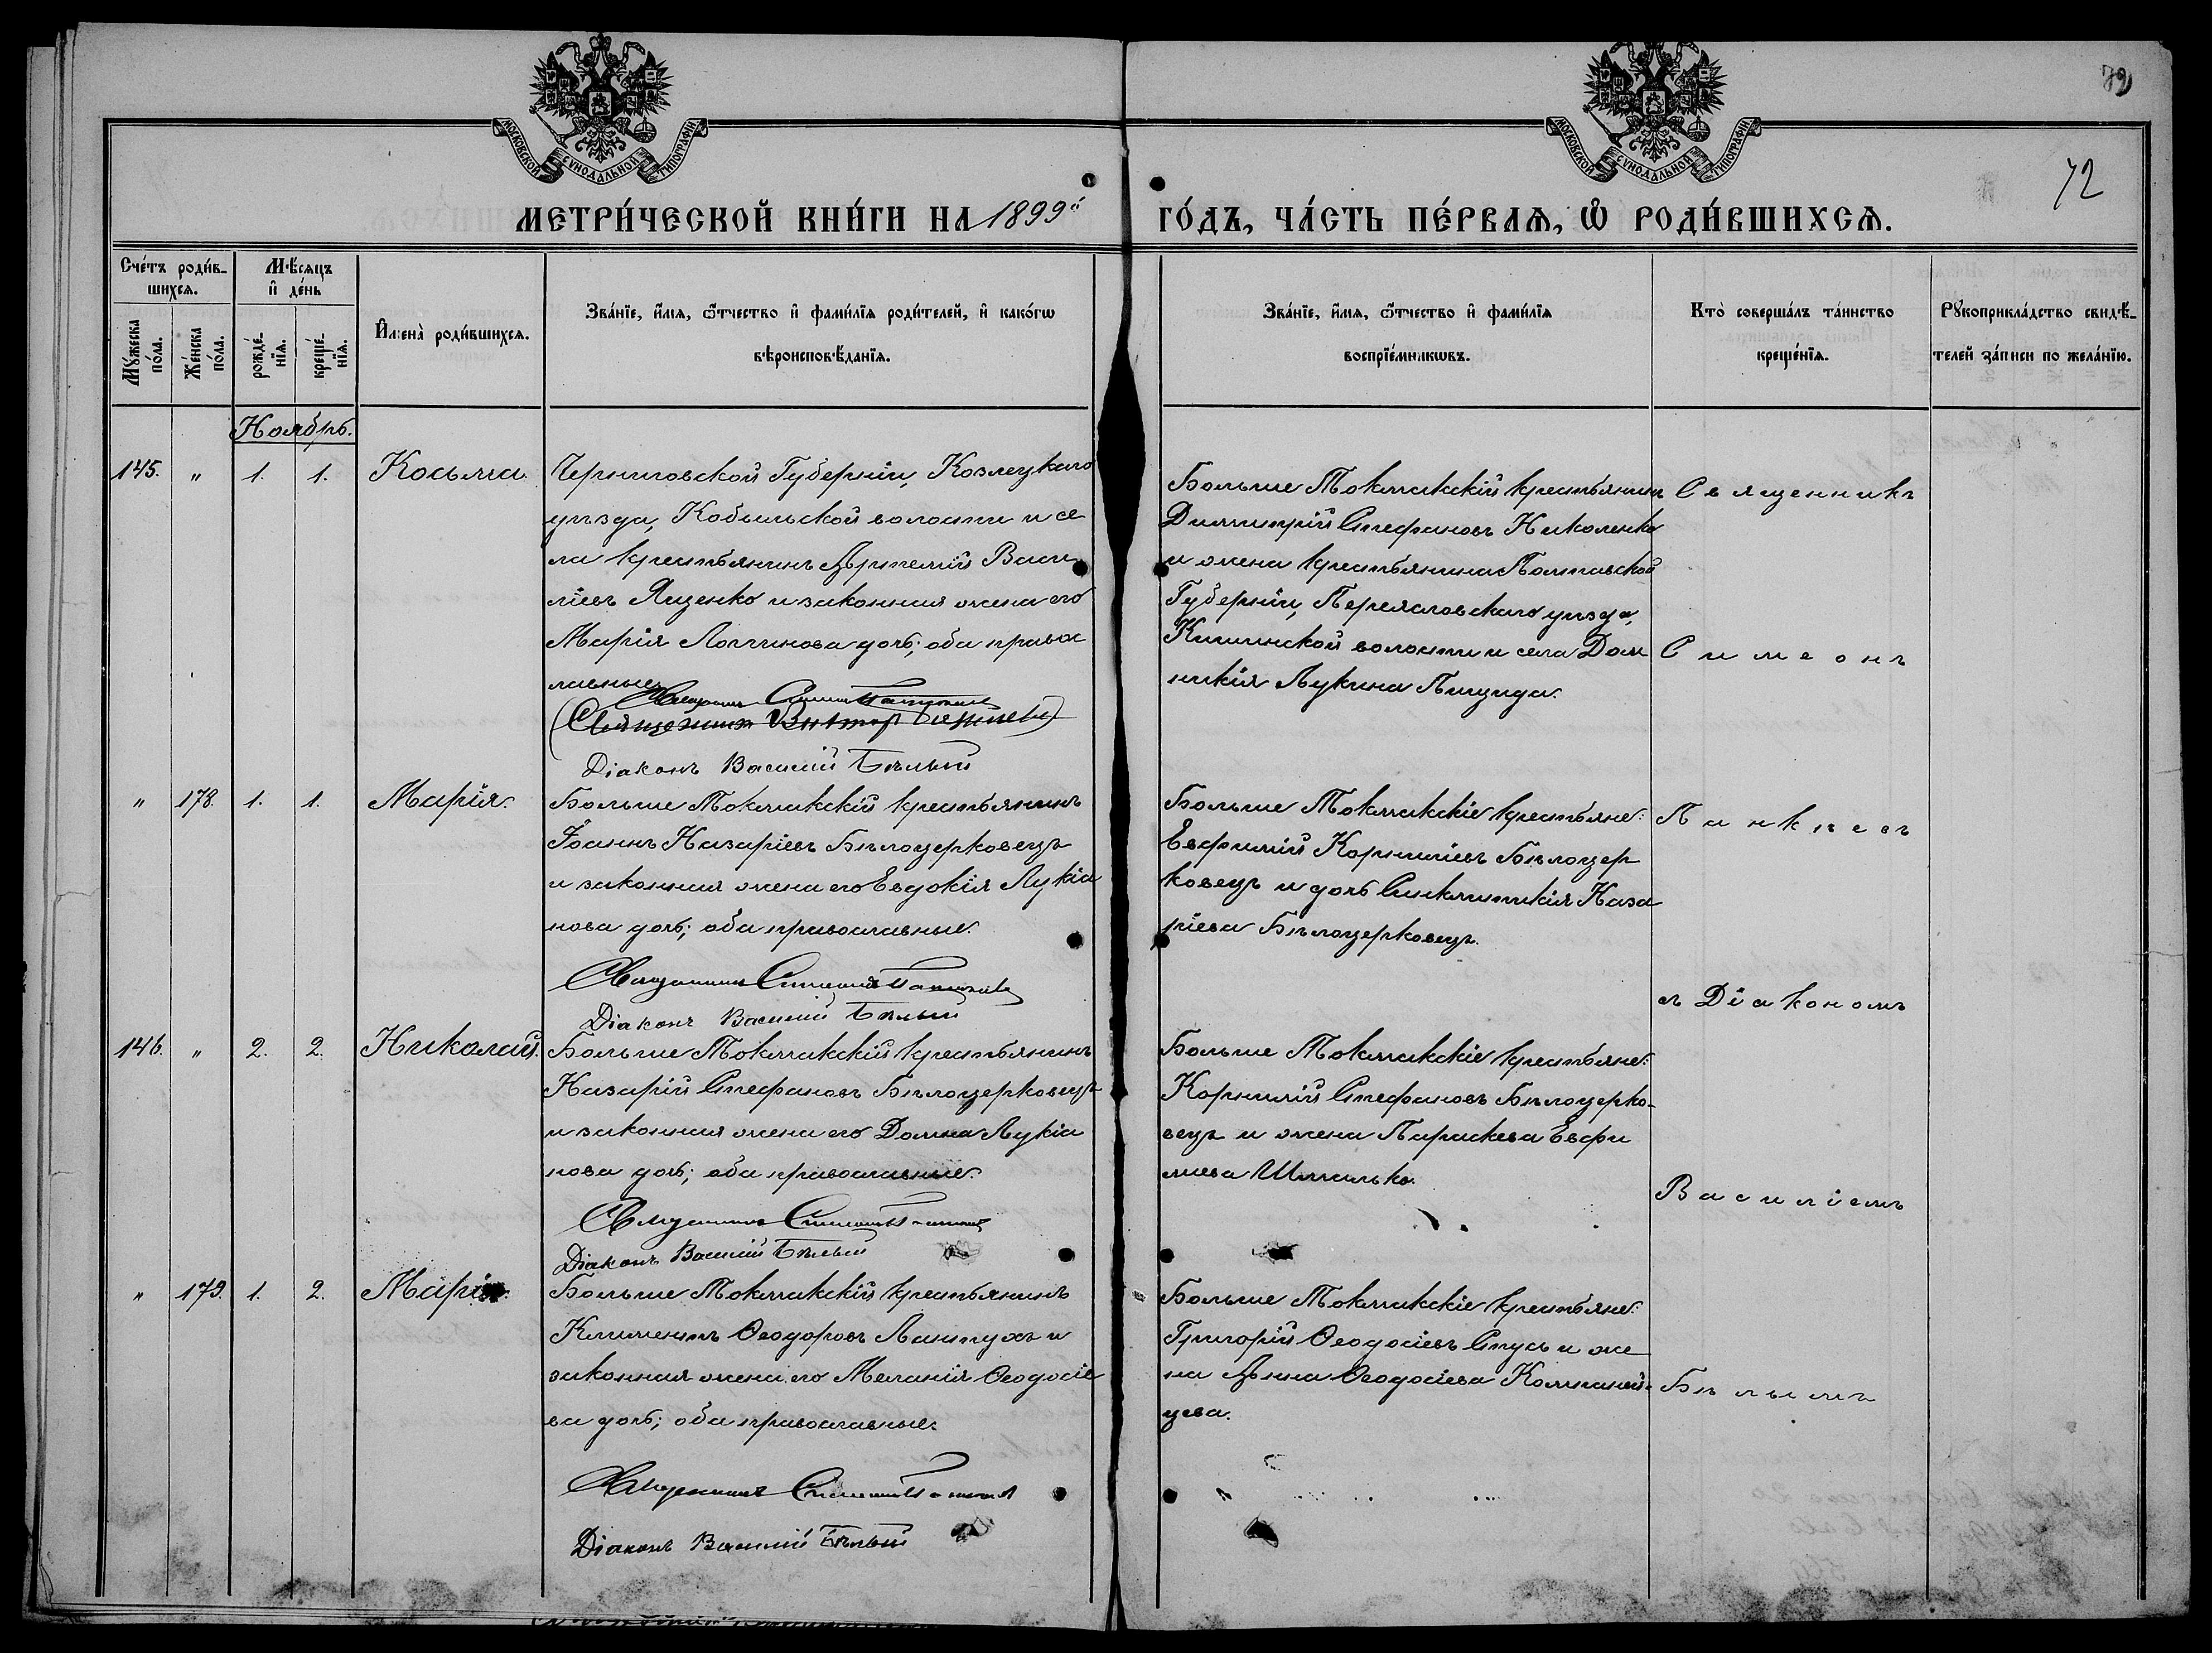 МОСКОВСКОЙ СѴНОДАЛЬНОЙ ТИПОГРАФІИ
МОСКОВСКОЙ СѴНОДАЛЬНОЙ ТИПОГРАФІИ
72
МЕТРИ́ЧЕСКОЙ КНИ́ГИ НА 1899й
ГО́ДЪ, ЧА́СТЬ ПЕ́РВАѦ, Ѡ҆ РОДИ́ВШИХСѦ.
Сче́тъ роди́в-
шихсѧ.
Мꙋ́жеска по́ла.
Же́нска по́ла.
Мѣ́сѧцъ
и҆ де́нь
рожде́-
нїѧ.
креще́-
нїѧ.
И҆мена̀ роди́вшихсѧ.
Зва́нїе, и҆́мѧ, ѻ҆́тчество и҆ фами́лїѧ роди́телей, и҆ како́гѡ
вѣроисповѣ́данїѧ.
Зва́нїе, и҆́мѧ, ѻ҆́тчество и҆ фами́лїѧ
воспрїе́мникѡвъ.
Кто̀ соверша́лъ та́инство
креще́нїѧ.
Рꙋкоприкла́дство свидѣ́-
телей за́писи по жела́нїю.
Ноябрь.
145. " 1. 1. Косьма.
Черниговской Губерніи, Козлецкаго
уѣзда, Кобыльской волости и се
ла крестьянинъ Артемій Васи
ліевъ Яценко и законная жена его
Марія Логгинова дочь; оба правос
лавные.
Діаконъ Василій Бѣлый
Больше Токмакскій крестьянинъ
Димитрій Стефановъ Николенко
и жена крестьянина Полтавской
Губерніи, Переяславскаго уѣзда,
волости и села Дом
никія Лукина
Священникъ
Симеонъ
" 178. 1. 1. Марія.
Больше Токмакскій крестьянинъ
Іоаннъ Назаріевъ Бѣлоцерковецъ
и законная жена его Евдокія Лукіа
нова дочь; оба православные.
Священникъ Симеонъ
Діаконъ Василій Бѣлый
Больше Токмакскіе крестьяне:
Евфимій Корниліевъ Бѣлоцер
ковецъ и дочь Синклитикія Наза
ріева Бѣлоцерковецъ.
Панкѣевъ
съ Діакономъ
146. " 2. 2. Николай.
Больше Токмакскій крестьянинъ
Назарій Стефановъ Бѣлоцерковецъ
и законная жена его Домна Лукіа
нова дочь; оба православные.
Священникъ Симеонъ
Діаконъ Василій Бѣлый
Больше Токмакскіе крестьяне:
Корнилій Стефановъ Бѣлоцерко-
вецъ и жена Параскева Евфи
міева
Василіемъ
" 179. 1. 2. Марія.
Больше Токмакскій крестьянинъ
Климентъ Ѳеодоровъ Лантухъ и
законная жена его Меланія Ѳеодосіе
ва дочь; оба православные.
Священникъ Симеонъ
Діаконъ Василій Бѣлый
Больше Токмакскіе крестьяне:
Григорій Ѳеодосіевъ Стусь и же
на Анна Ѳеодосіева Компаней-
цева.
Бѣлымъ